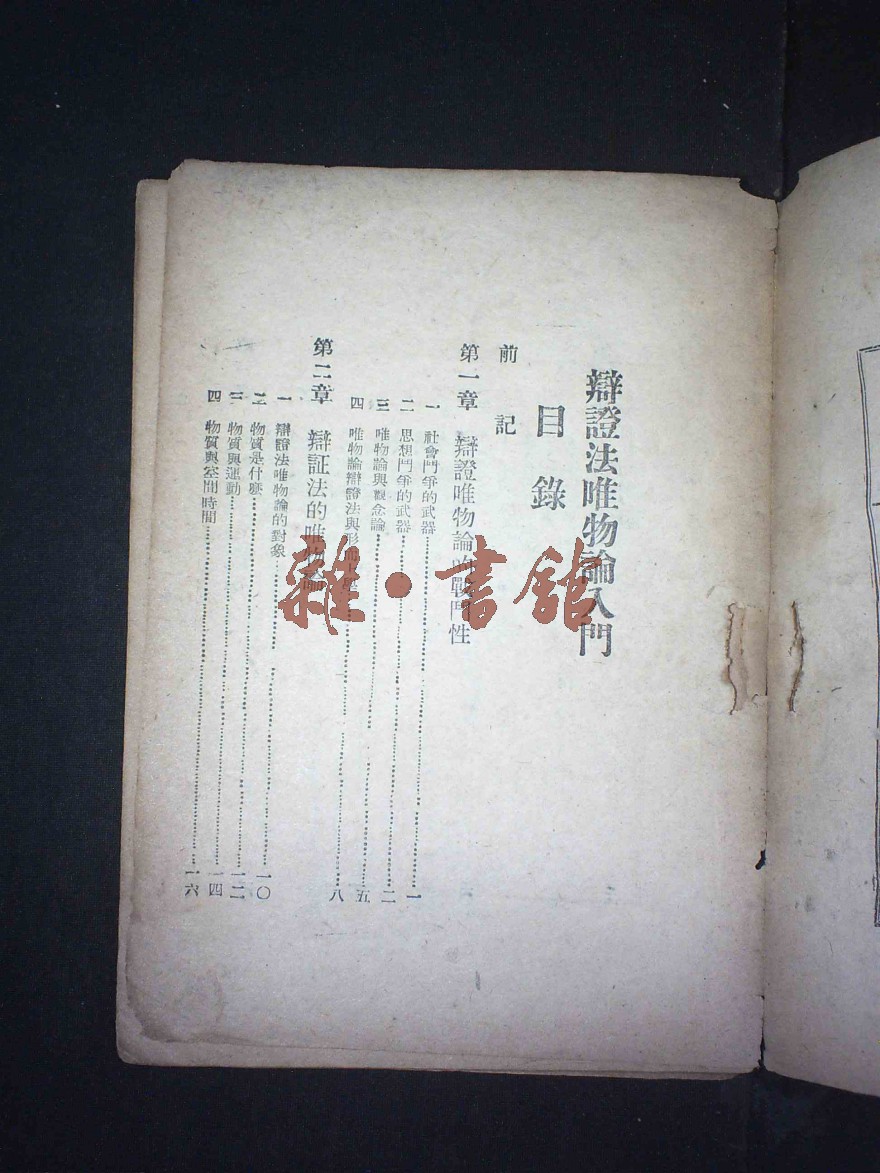 辯證法唯物論入門
目錄
前記
第一章 辯證唯物論的戰鬥性
一 社會鬥爭的武器……一
二 思想鬥爭的武器……二
三 唯物論與觀念論……五
四 唯物論辯證法與形……八
第二章 辯証法的唯物論
一 辯證法唯物論的對象……一〇
二 物質是什麼……一二
三 物質與運動……一四
四 物質與空間時間……一六
雜·書館